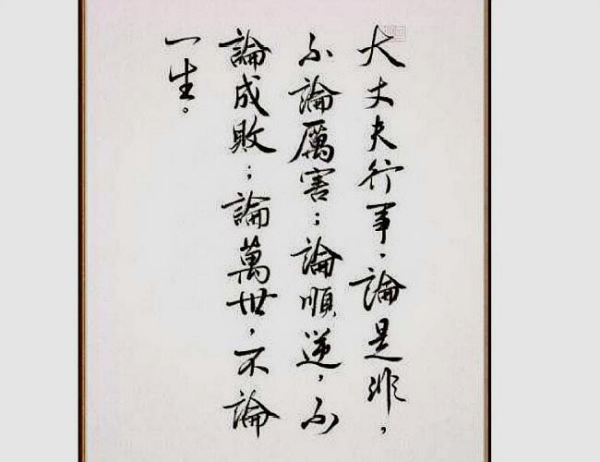 大丈夫行事、論是非,
不論厲害;論順逆,不
論成敗;論萬世,不論
一生。